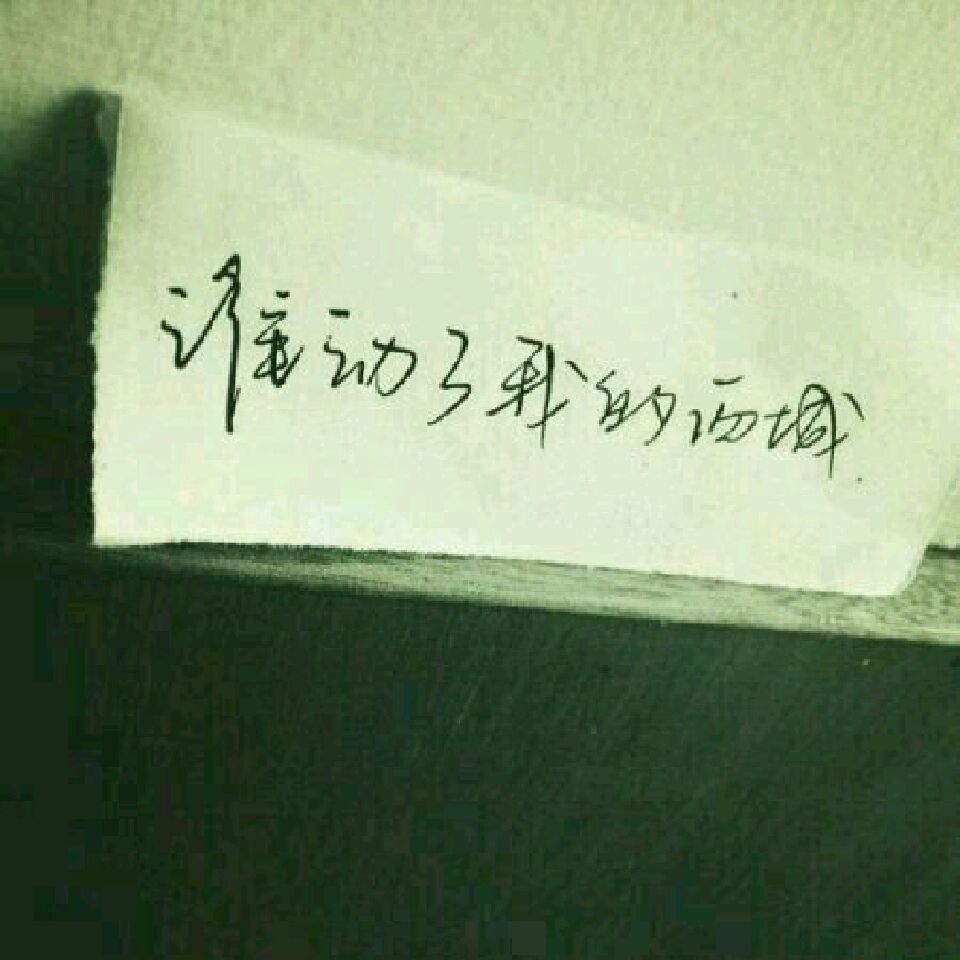 谁动了我的西城.